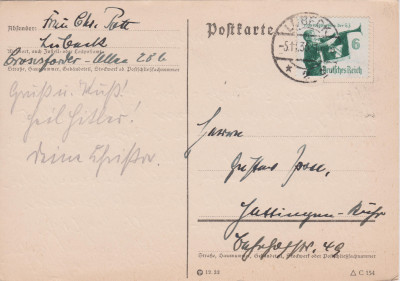 Absender: Frau Chr. Rott
Lübeck
Wohnort, auch Zustell- oder Leitpostamt
Cronsforder-Allee 25 b
Straße, Hausnummer, Gebäudeteil, Stockwerk od. Postschließfachnummer
Gruß u. Kuß!
Heil Hitler!
Deine Christa.
Postkarte
LÜBECK
-5.11.3
6
Deutsches Reich
Herrn
Gustav
Hattingen-Ruhr
Bahnhofstr. 49
Straße, Hausnummer, Gebäudeteil, Stockwerk oder Postschließfachnummer
C 154